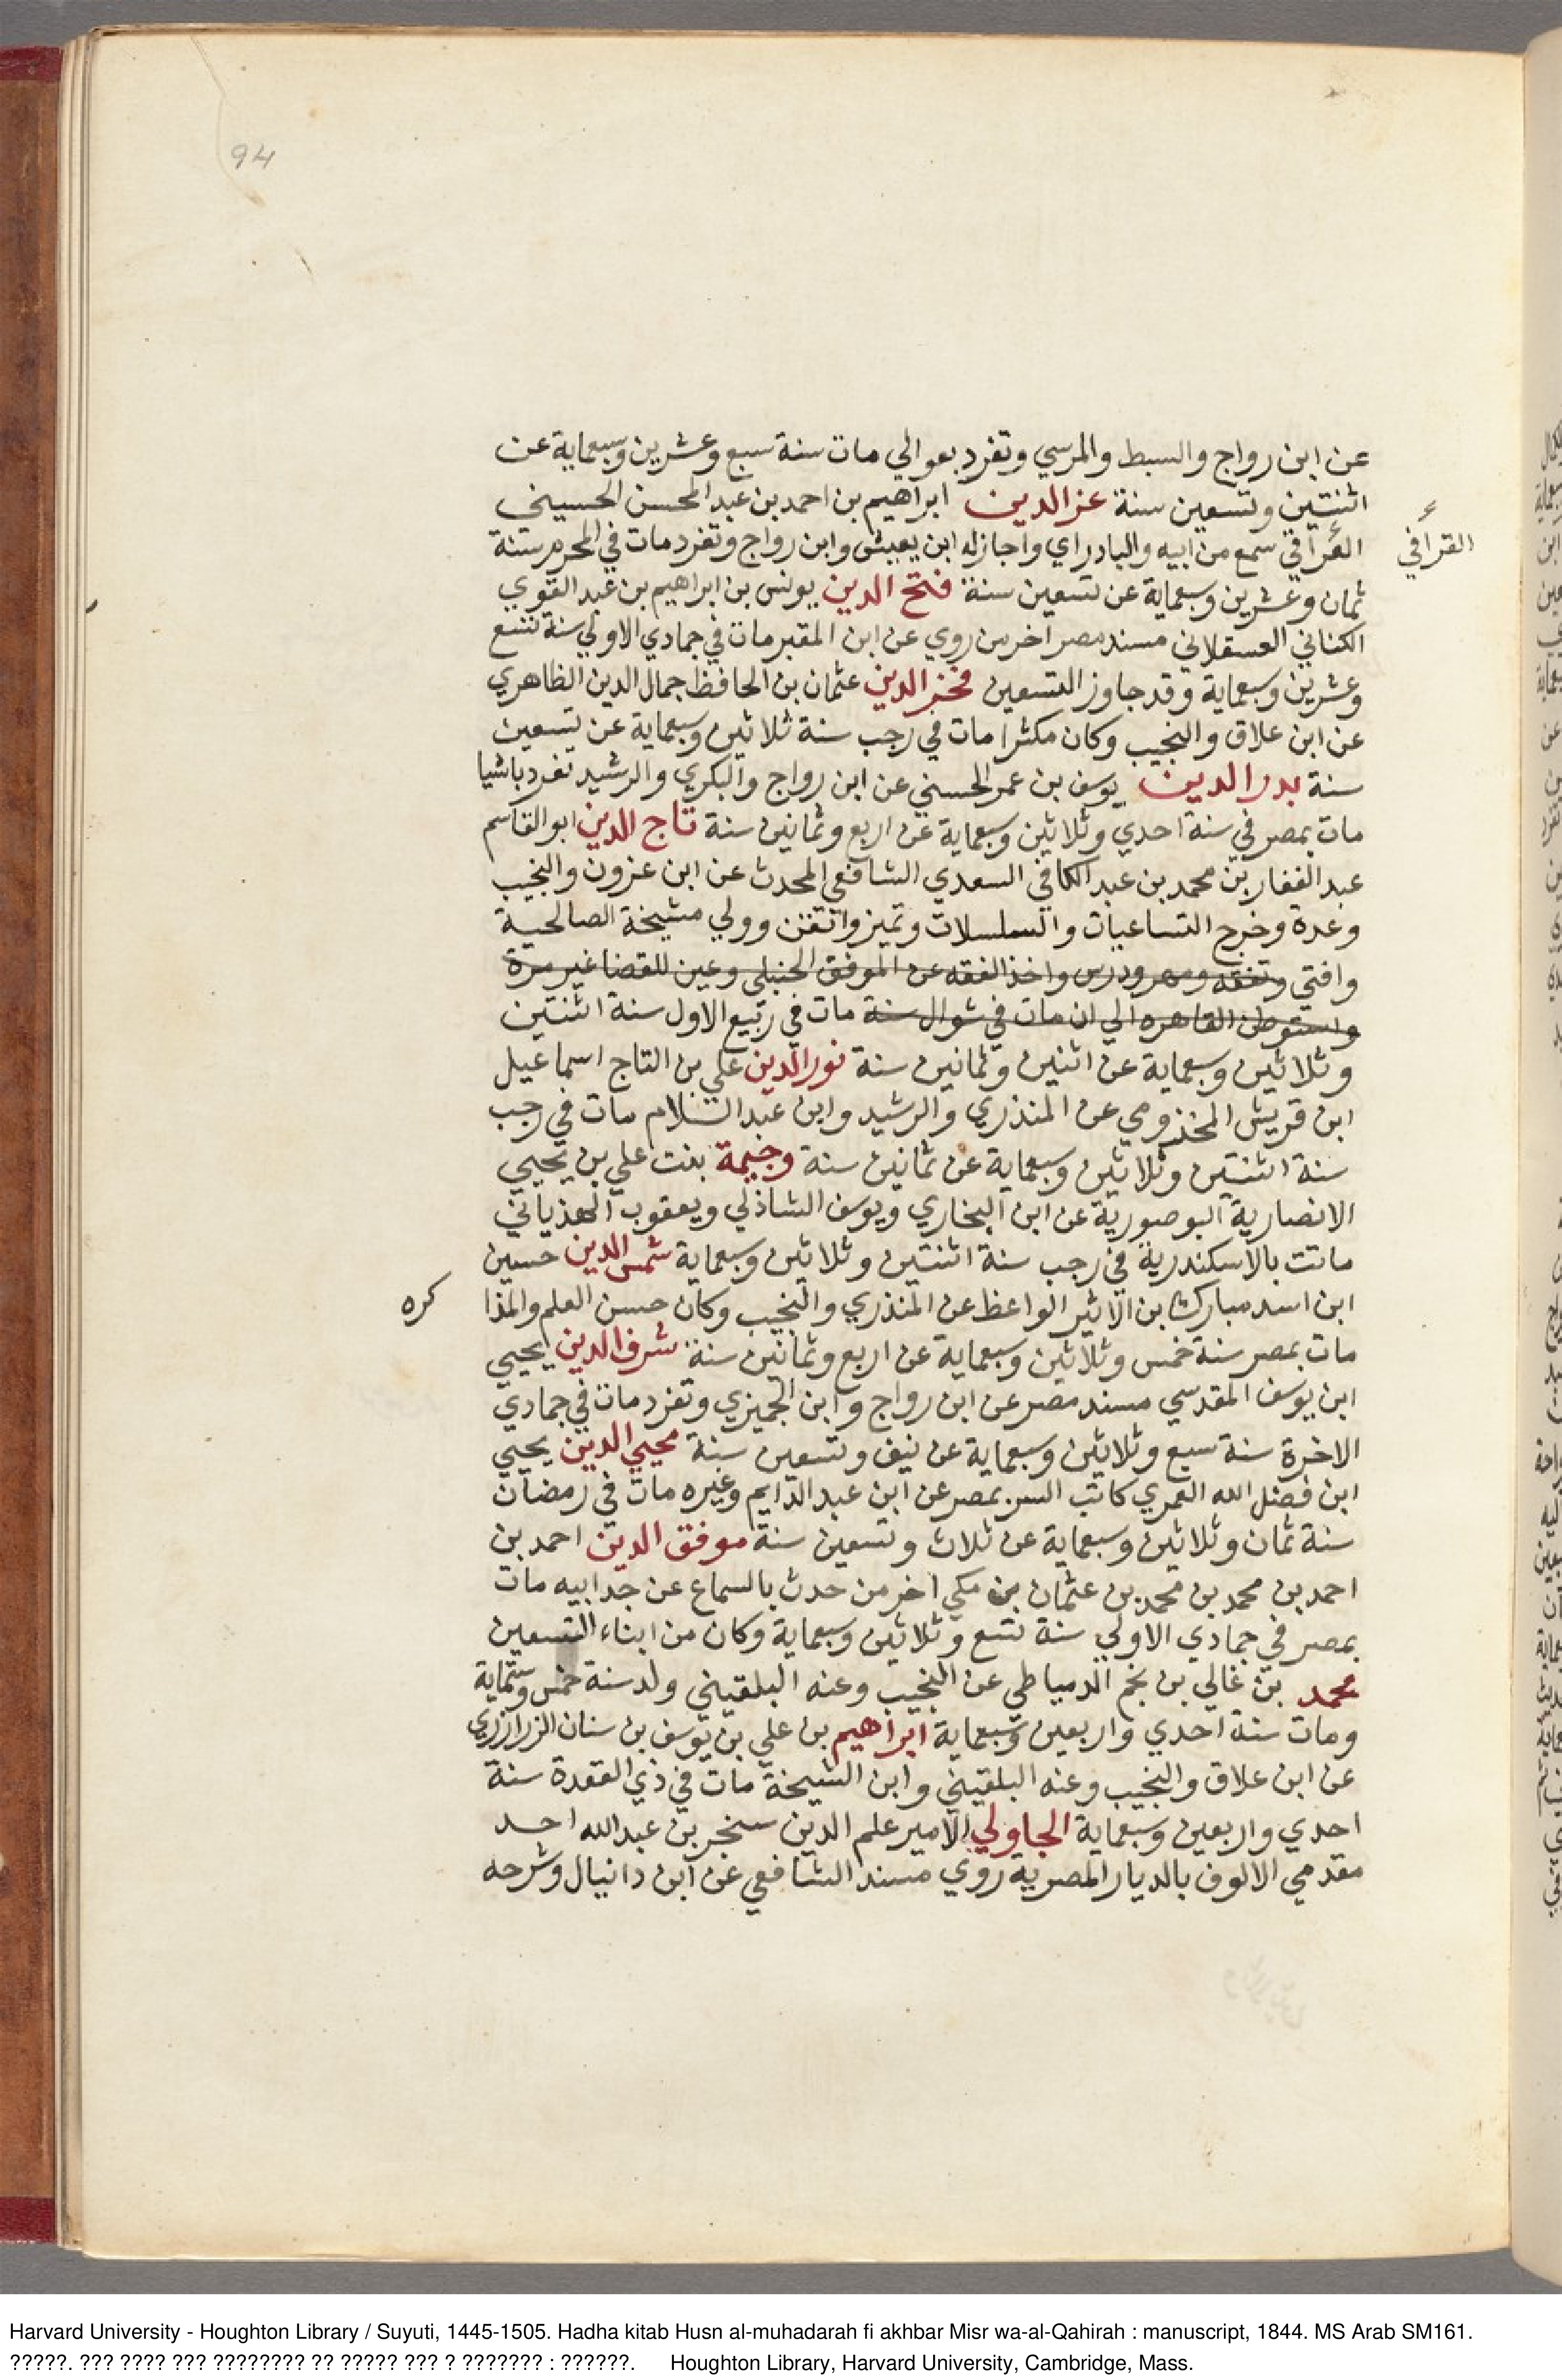 94
عن ابن رواج والسبط والمرسي وتفرد بعوالي مات سنة سبع وعشرين وسبعماية عن
اثنتين وتسعين سنة عز الدين ابراهيم بن احمد بن عبد المحسن الحسيني
القرافي
الغرافي سمع من ابيه والبادراي واجاز له ابن يعيش وابن رواج وتفرد مات في المحرم سنة
ثمان وعشرين وسبعماية عن تسعين سنة فتح الدين يونس بن ابراهيم بن عبد القوي
الكناني العسقلاني مسند مصر اخر من روي عن ابن المقير مات في جمادي الاولي سنة تسع
وعشرين وسبعماية وقد جاوز التسعين فخر الدين عثمان بن الحافظ جمال الدين الظاهري
عن ابن علاق والنجيب وكان مكثرا مات في رجب سنة ثلاثين وسبعماية عن تسعين
سنة بدر الدين يوسف بن عمر الحسني عن ابن رواج والبكري والرشيد تفرد باشيا
مات بمصر في سنة احدي وثلاثين وسبعماية عن اربع وثمانين سنة تاج الدين ابو القاسم
عبد الغفار بن محمد بن عبد الكافي السعدي الشافعي المحدث عن ابن عزون والنجيب
وعدة وخرج التساعيات والسلسلات وتميز واتقن وولي مشيخة الصالحية
وافتي وتفقه ومهر ودرس واخذ الفقه عن الموفق الحنبلي وعين للقضا غير مرة
واستوطن القاهره الي ان مات في شوال سنة مات في ربيع الاول سنة اثنتين
وثلاثين وسبعماية عن اثنين وثمانين سنة نور الدين علي بن التاج اسماعيل
ابن قريش المخزومي عن المنذري والرشيد وابن عبد السلام مات في رجب
سنة اثنتين وثلاثين وسبعماية عن ثمانين سنة وجيهة بنت علي بن يحيي
الانصارية البوصيورية عن ابن البخاري ويوسف الشاذلي ويعقوب الهذياني
ماتت بالاسكندرية في رجب سنة اثنتين وثلاثين وسبعماية شمس الدين حسين
ابن اسد مبارك بن الاثير الواعظ عن المنذري والنجيب وكان حسن العلم والمذا
كره
مات بمصر سنة خمس وثلاثين وسبعماية عن اربع وثمانين سنة شرف الدين يحيي
ابن يوسف المقدسي مسند مصر عن ابن رواج وابن الجميزي وتفرد مات في جمادي
الاخرة سنة سبع وثلاثين وسبعماية عن نيف وتسعين سنة محيي الدين يحيي
ابن فضل الله العمري كاتب السر بمصر عن ابن عبد الدايم وغيره مات في رمضان
سنة ثمان وثلاثين وسبعماية عن ثلاث وتسعين سنة موفق الدين احمد بن
احمد بن محمد بن محمد بن عثمان بن مكي اخر من حدث بالسماع عن جد ابيه مات
بمصر في جمادي الاولي سنة تسع وثلاثين وسبعماية وكان من ابناء التسعين
محمد بن غالي بن نجم الدمياطي عن النجيب وعنه البلقيني ولد سنة خمس وستماية
ومات سنة احدي واربعين وسبعماية ابراهيم بن علي بن يوسف بن سنان الزرازري
عن ابن علاق والنجيب وعنه البلقيني وابن الشيخة مات في ذي القعدة سنة
احدي واربعين وسبعماية الجاولي الامير علم الدين سنجر بن عبد الله احد
مقدمي الالوف بالديار المصرية روي مسند الشافعي عن ابن دانيال وشرحه
Harvard University - Houghton Library / Suyuti, 1445-1505. Hadha kitab Husn al-muhadarah fi akhbar Misr wa-al-Qahirah : manuscript, 1844. MS Arab SM161.
?????. ??? ???? ??? ???????? ?? ????? ??? ? ??????? : ??????. Houghton Library, Harvard University, Cambridge, Mass.